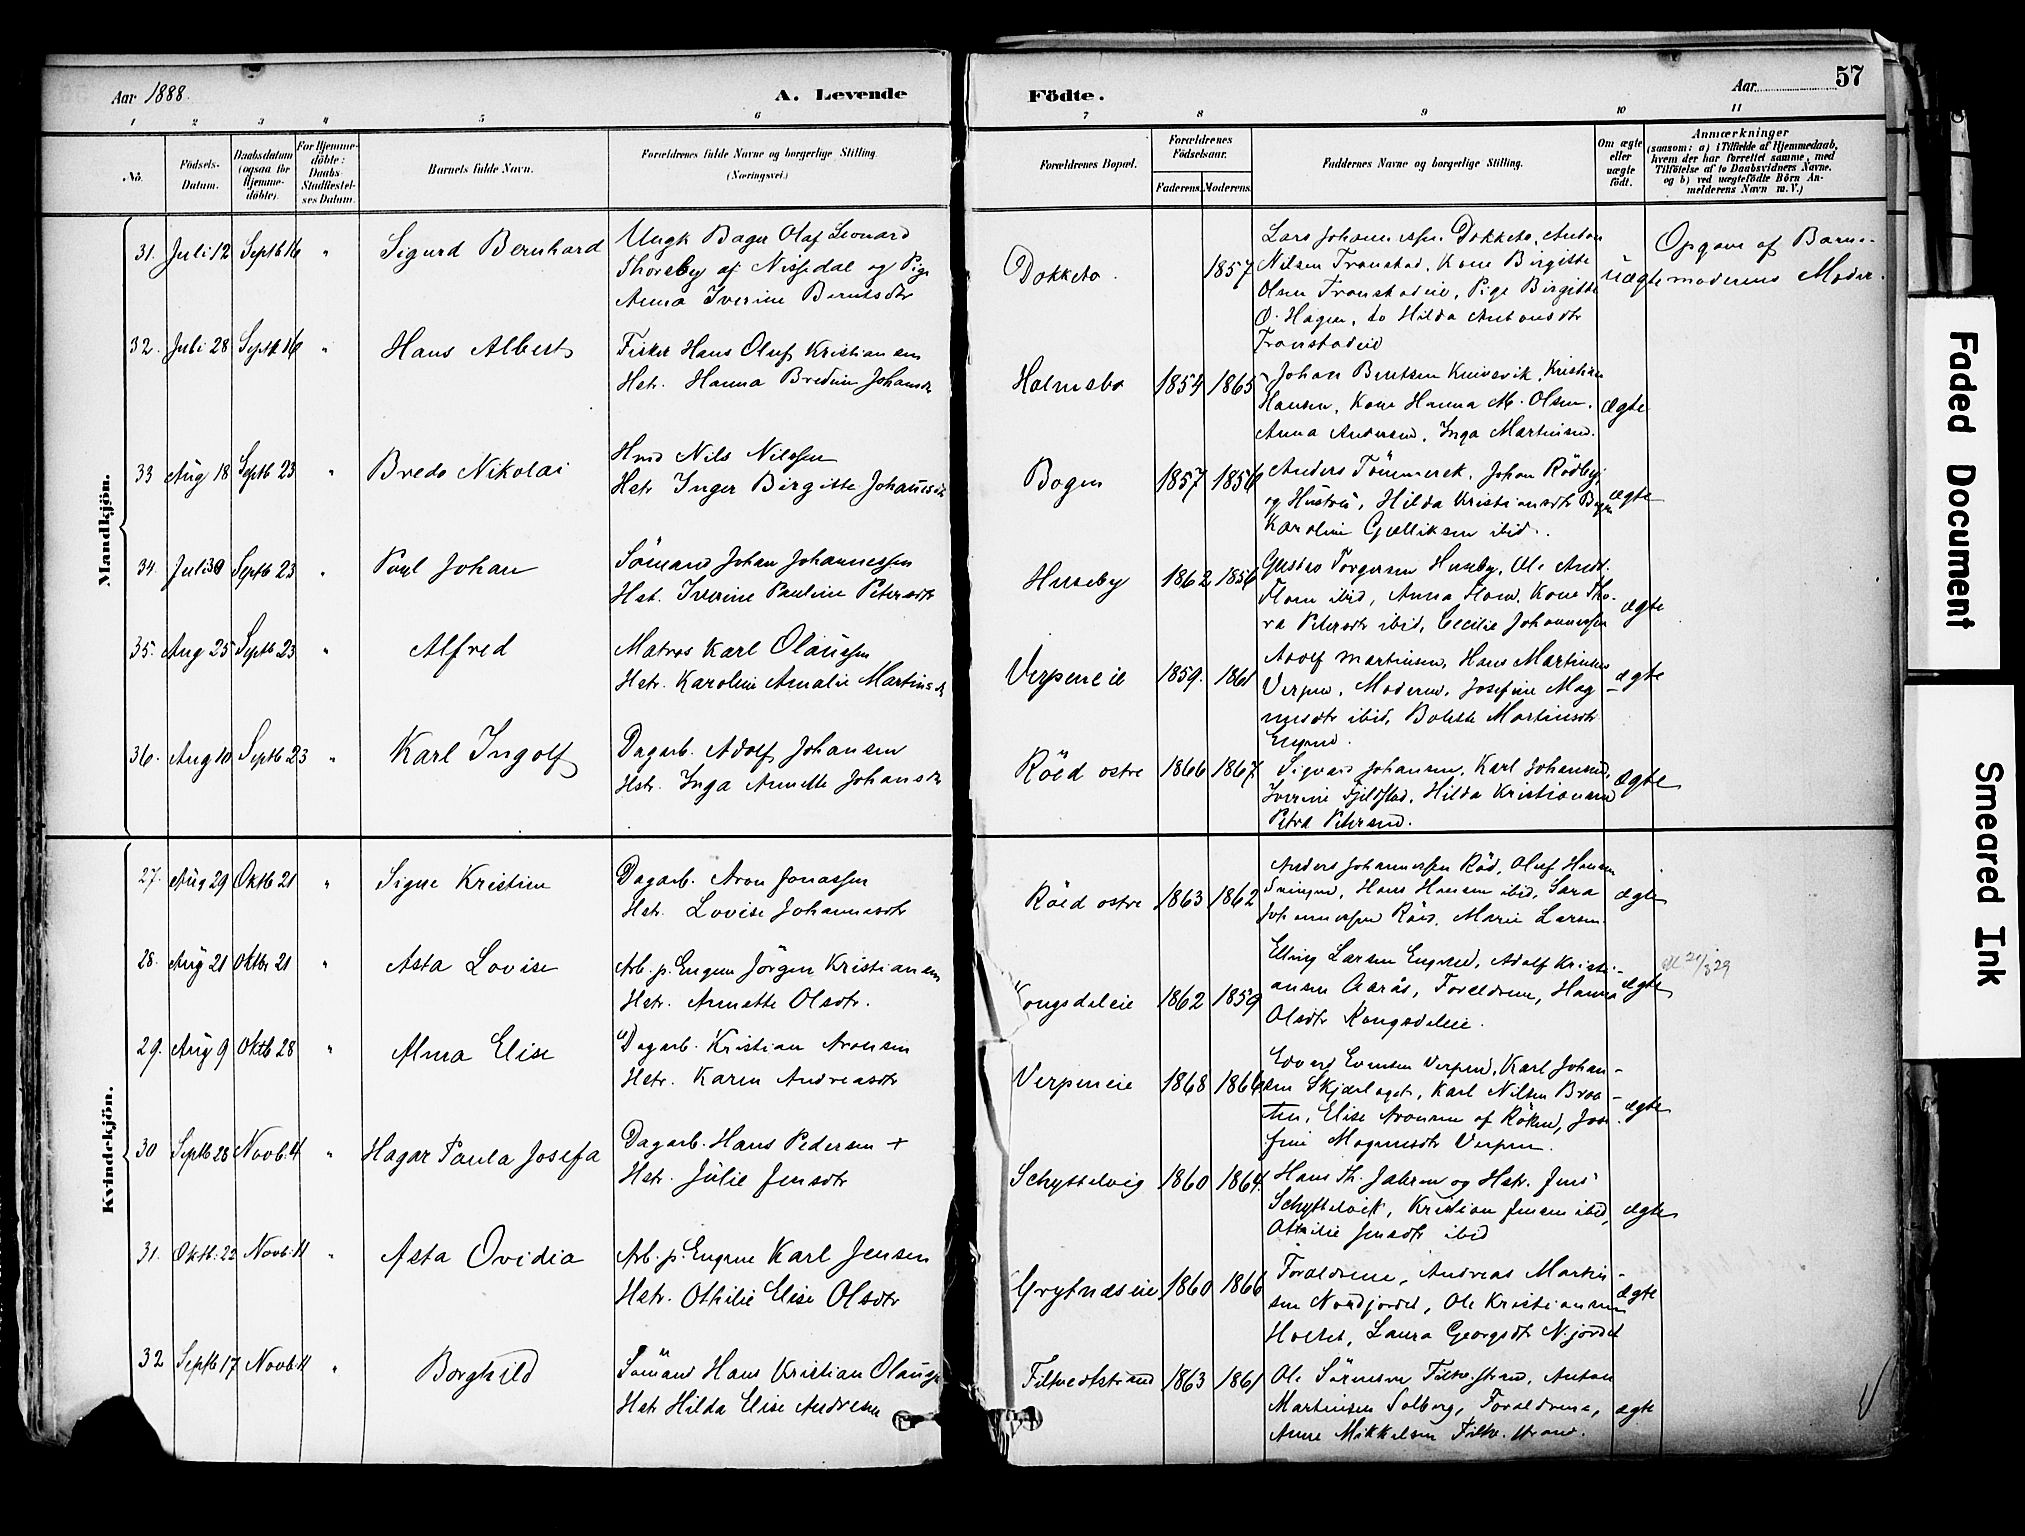 Aar 1888.
A. Levende
Födte.
Aar
57
1 2 3 4 5 6 7 8 9 10 11
No.
Födsels-Datum.
Daabsdatum (ogsaa for Hjemmedöbte).
For Hjemmedöbte: Daabs-Stadfæstelses Datum.
Barnets fulde Navn.
Forældrenes fulde Navne og borgerlige Stilling
(Næringsvei.)
Forældrenes Bopæl.
Forældrenes Födselsaar.
Faderens.
Moderens.
Faddernes Navne og borgerlige Stilling.
Om ægte eller uægte födt.
Anmærkninger
(saasom: a) i Tilfælde af Hjemmedaab, hvem der har forrettet samme, med Tilföielse af to Daabsvidners Navne. og b) ved uægtefödte Börn Anmelderens Navn m. V.)
Mandkjön.
31. Juli 12 Septb 16 " Sigurd Bernhard
Ungk Bager Olaf Leonard
Thorsby af Nissedal og Pige
Anna Iverine Berntsdtr
Dokketo. 1857
Lars Johannessen Dokketo, Anton
Nilsen Tronstad, Kone Birgitte
Olsen Tronstadeie, Pige Birgitte
O. Hagen, do Hilda Antonsdtr
Tronstadeie
Uægte
Opgave af Barne-
moderens Moder.
32. Juli 28 Septb 16 " Hans Albert
Fisker Hans Oluf Kristiansen
Hstr. Hanna Bredine Johansdr
Holmsbo 1854 1865
Johan Berntsen Knivsvik, Kristian
Hansen, Kone Hanna M. Olsen.
Anna Andersen, Inga Martinsen.
ægte
33 Aug 18 Septb 23 " Brede Nikolai
Hmd Nils Nilssen
Hstr Inger Birgitte Johansdr
Bogen 1857 1856
Anders Tömmerek, Johan Rödby,
og Hustru, Hilda Kristiansdtr Bogen
Karoline Gulliksen ibid.
ægte
34. Juli 30 Septb 23 " Paul Johan
Sömand Johan Johannessen
Hst. Iverine Pauline Petersdtr
Huseby 1862 1856
Gustav Torgersen Huseby, Ole Andr.
Flom ibid, Anna Flom, Kone Tho-
ra Petersdtr ibid, Cecilie Johannessen
ægte
35. Aug 25 Septb 23 " Alfred
Matros Karl Olaussen
Hstr. Karoline Amalie Martinsdr
Verpeneie 1859. 1861
Adolf Martinsen, Hans Martinsen
Verpen, Moderen, Josefine Mag-
nusdtr ibid, Bolette Martinsdtr
Engene.
ægte
36. Aug 10 Septb 23 " Karl Ingolf
Dagarb. Adolf Johansen
Hstr. Inga Annette Johansdr
Röed östre 1866 1867
Sigvard Johansen, Karl Johansen,
Iverine Fjeldstad, Hilda Kristiansen
Petra Petersen.
ægte
Kvindekjön.
27. Aug 29 Oktb 21 " Signe Kristine
Dagarb. Aron Jonassen
Hstr. Lovise Johannesdtr
Röed östre 1863 1862
Anders Johannessen Röd, Oluf Hansen
Svingen, Hans Hansen ibid, Sara
Johannessen Röed, Marie Larsen.
ægte
28. Aug 21 Oktbr 21 " Asta Lovise
Arb. p. Engene Jörgen Kristiansen
Hstr. Annette Olsdtr.
Kongsdeleie 1862 1859
Elling Larsen Engene, Adolf Kristi-
ansen Aarås, Forældrene, Hanna
Olsdtr Kongsdeleie.
ægte
21/3 29
29. Aug 9 Oktb 28 " Alma Elise
Dagarb. Kristian Aronsen
Hstr. Karen Andreasdtr
Verpeneie 1868 1866
Edvard Evensen Verpen, Karl Johan-
sen Skjærlaget, Karl Nilsen Braa-
ten, Elise Aronsen af Röken, Jose-
fine Magnusdtr Verpen.
ægte
30 Septb 28 Novb. 4 " Hagar Paula Josefa
Dagarb. Hans Pedersen +
Hstr. Julie Jensdtr
Schyttelvig 1860 1864.
Hans Th. Jahren og Hstr. Jens
Schyttelvik, Kristian Jensen ibid,
Othilie Jensdtr ibid
ægte
31. Oktb. 22 Novb. 11 " Asta Ovidia
Arb. p. Engene Karl Jensen
Hstr. Othilie Elise Olsdtr
Grytnæseie 1860 1866
Forældrene, Andreas Martin-
sen Nordjordet, Ole Kristiansen
Holtet, Laura Georgsdtr N.jordet
ægte
32 Septb 17 Novb 11 " Borghild
Sömand Hans Kristian Olausen
Hstr Hilda Elise Andresen
Filtvedtstrand 1863 1861
Ole Sörensen Filtv.strand, Anton
Martinsen Solberg, Forældrene,
Anne Mikkelsen Filtv. strand.
ægte
Faded Document
Smeared Ink